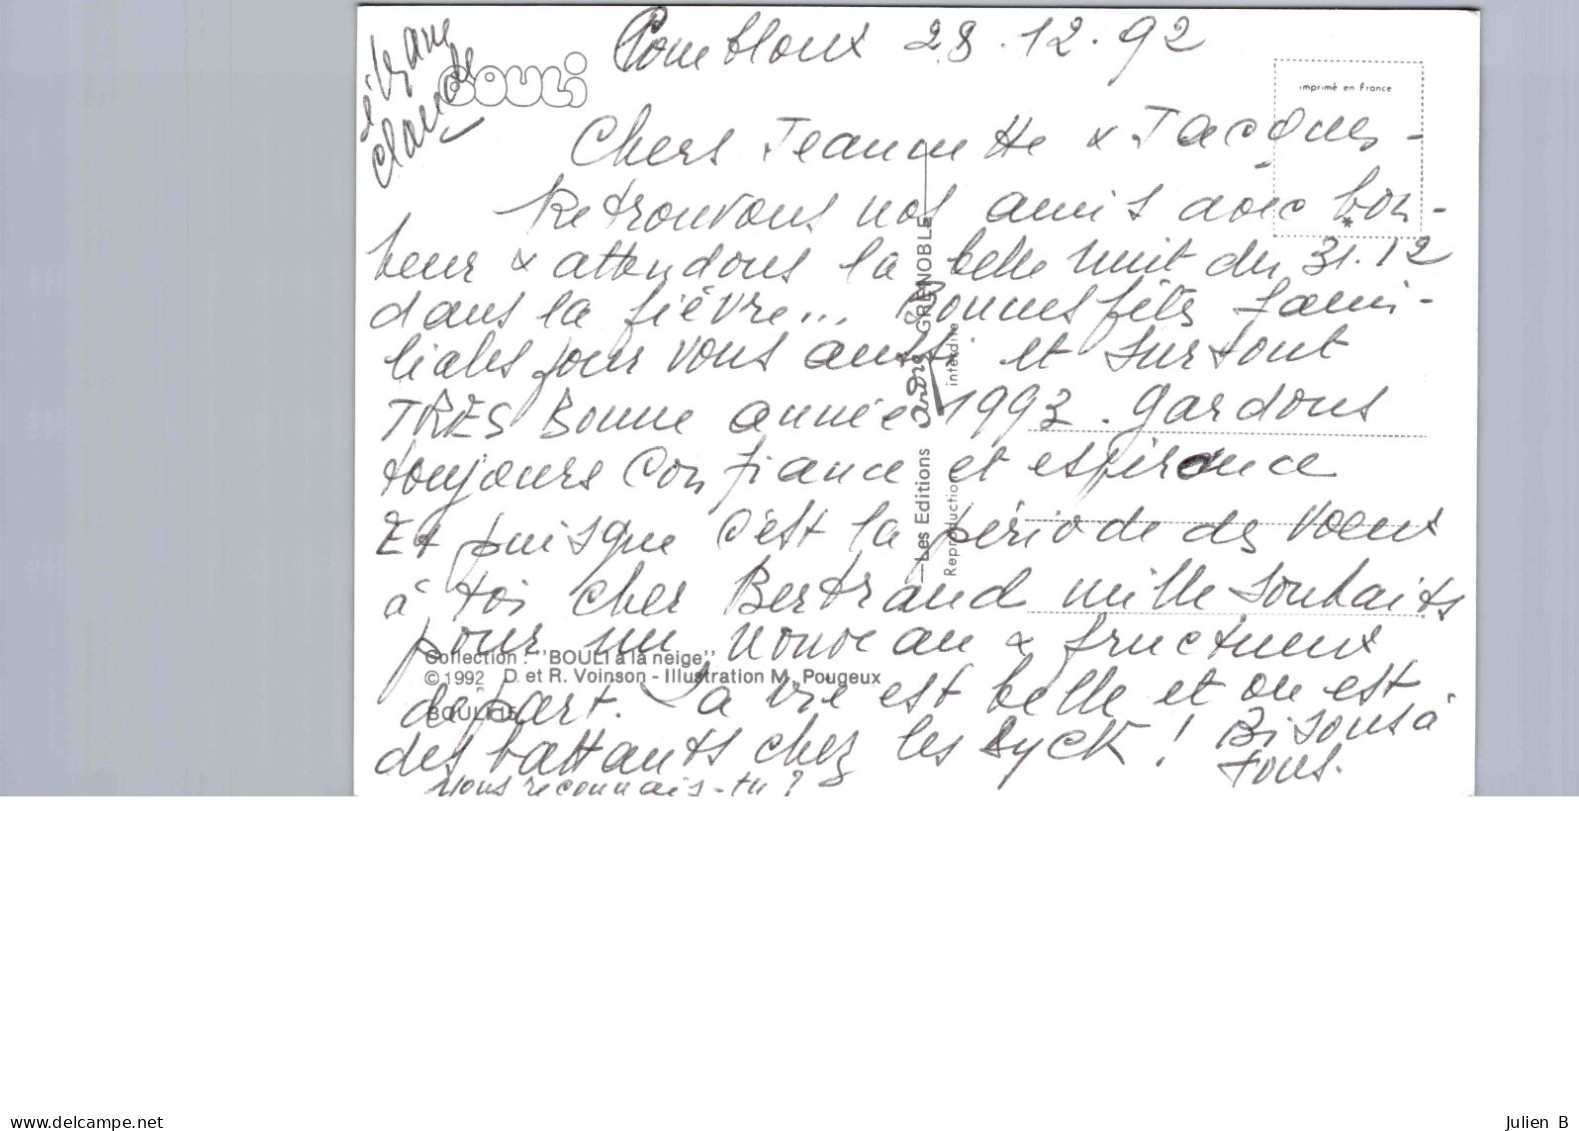 Combloux 28.12.92
BOULi
imprimé en France
Chers Jeannette & Jacques -
Retrouvons nos amis avec bon-
heur & attendons la belle nuit du 31.12
dans la fièvre... Bonnes fêtes fami-
liales pour vous aussi et surtout
TRES Bonne année 1993. Gardons
toujours confiance et espérance
Et puisque c'est la période des voeux
à toi cher Bertrand mille souhaits
pour un nouveau & fructueux
départ. La vie est belle et on est
des battants chez les Syck ! Bisous à
tous.
Nous reconnais-tu ?
Claude
Les Editions André GRENOBLE
Reproduction interdite
Collection : "BOULI à la neige"
© 1992 D. et R. Voinson - Illustration M. Pougeux
delcampe.net
Julien B